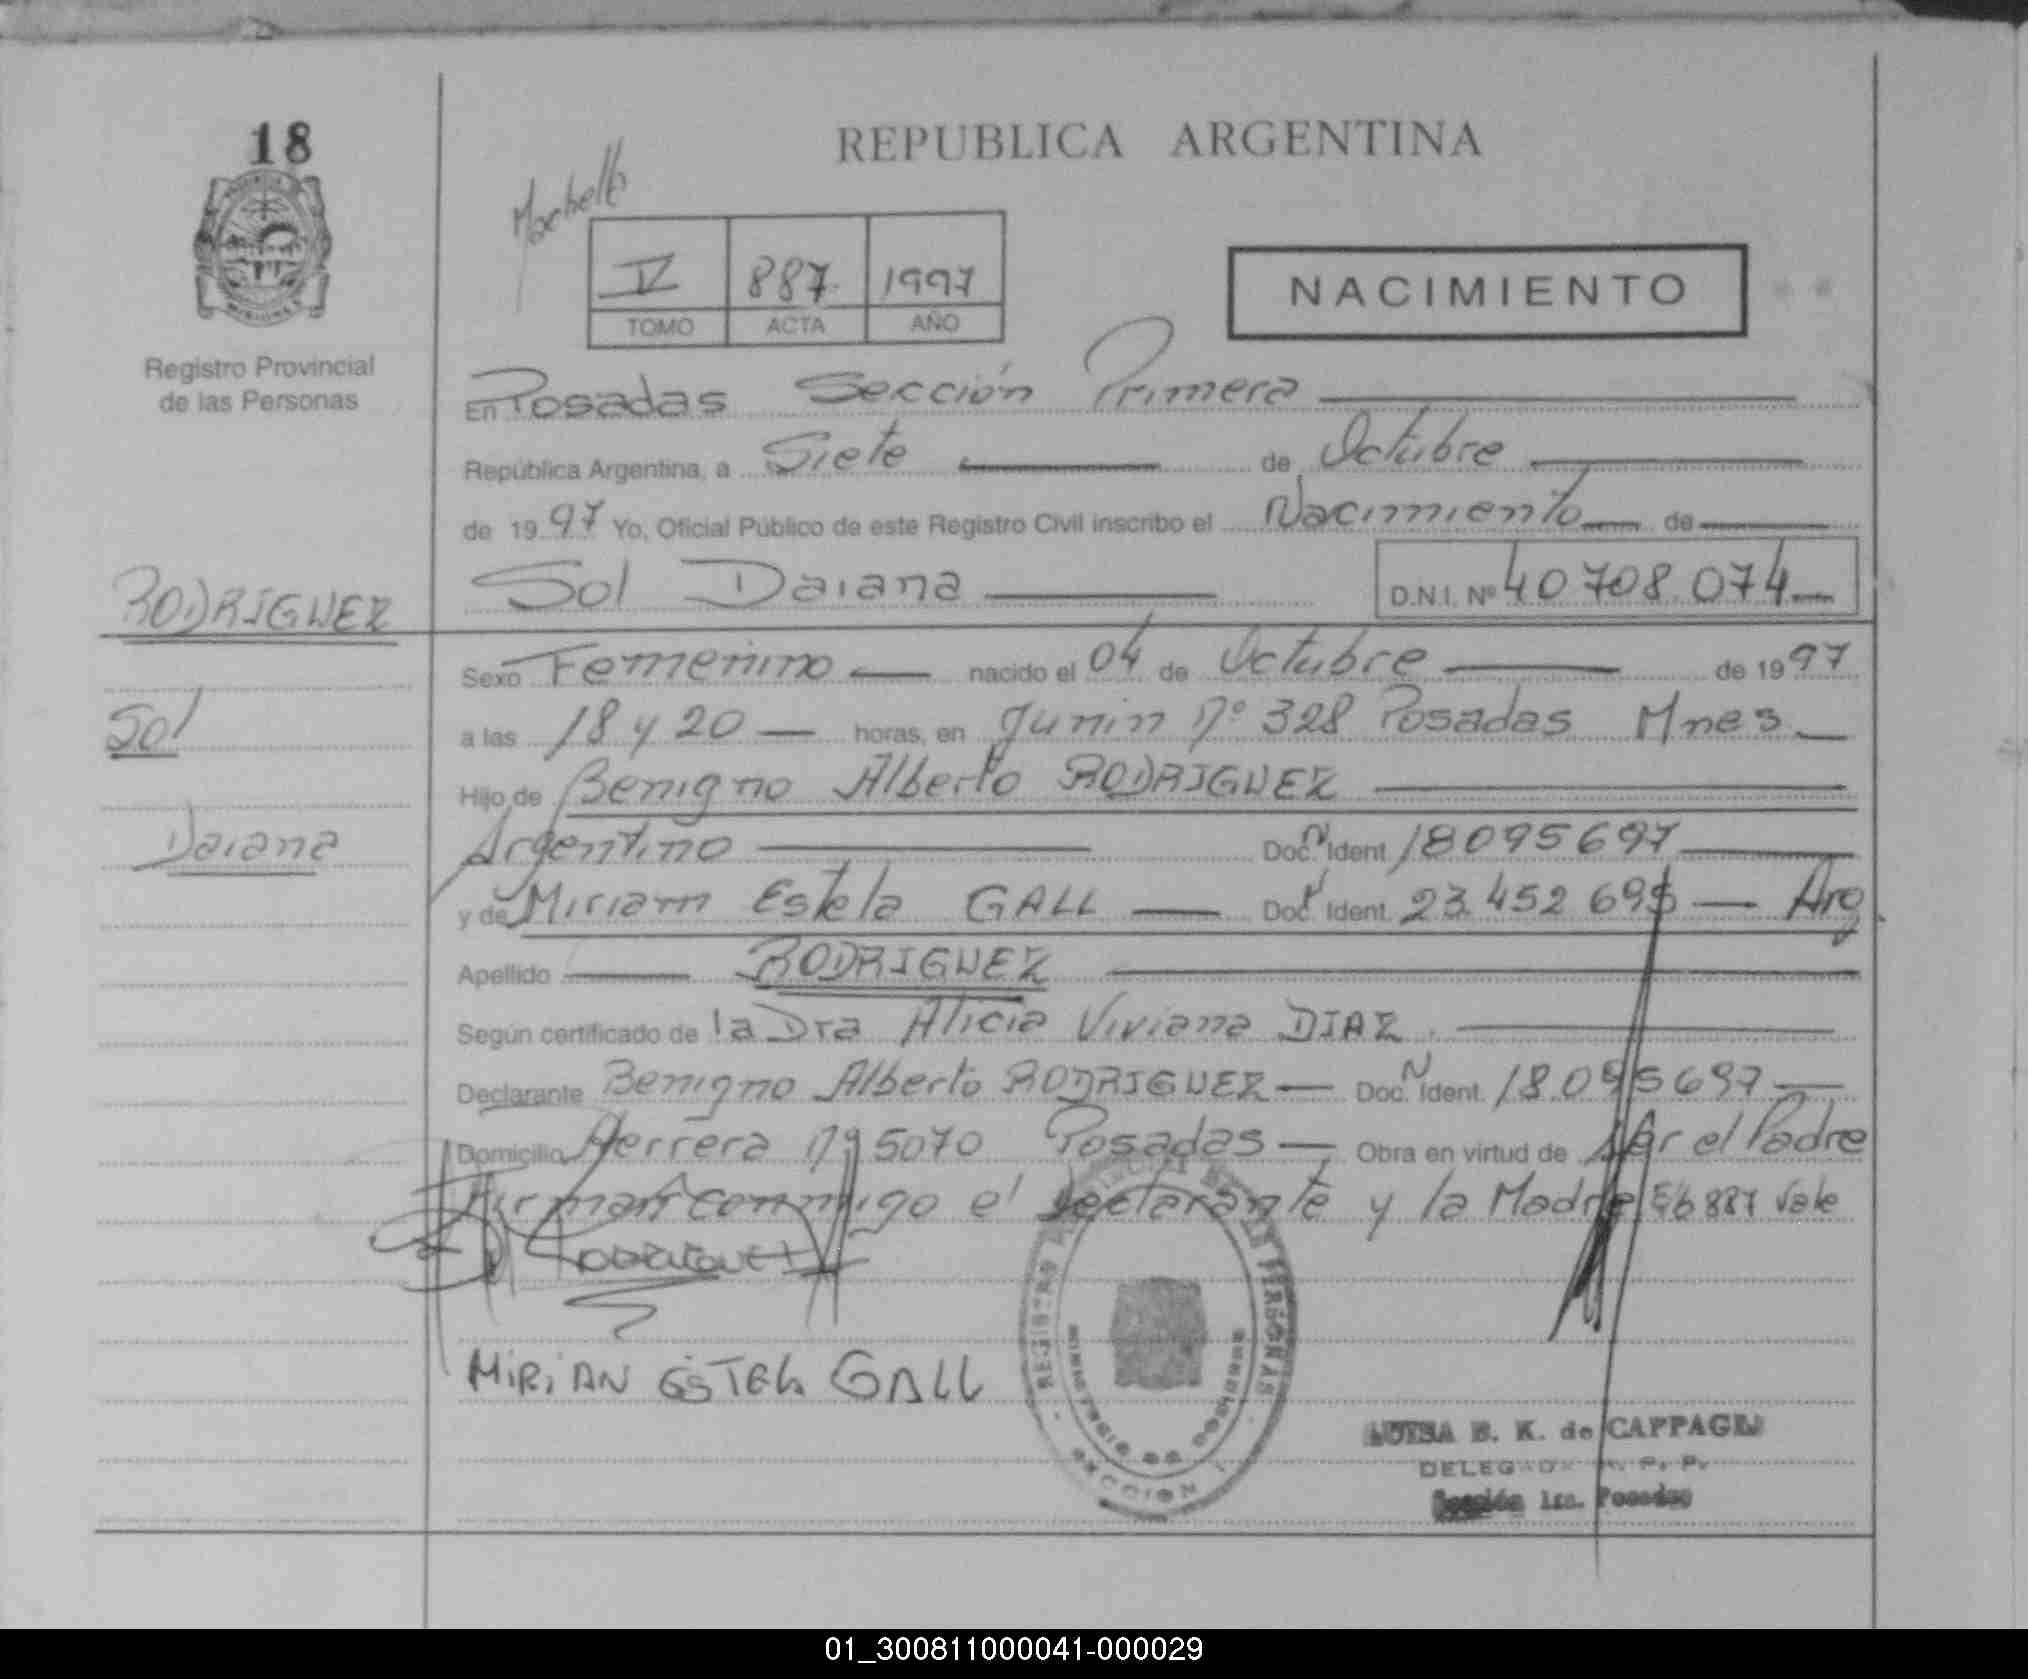 18
REPUBLICA ARGENTINA
V 887 1997
TOMO ACTA AÑO
NACIMIENTO
Registro Provincial
de las Personas
En Posadas Sección Primera
República Argentina, a Siete de Octubre
de 1997 Yo, Oficial Público de este Registro Civil inscribo el Nacimiento de
RODRIGUEZ
Sol Daiana D.N.I. Nº 40708.074
Sexo Femenino nacido el 04 de Octubre de 1997
Sol
a las 18 y 20 horas, en Junin Nº 328 Posadas Mnes
Hijo de Benigno Alberto RODRIGUEZ
Daiana
Argentino Doc. N Ident. 18095697
y de Miriam Estela GALL Doc. N Ident. 23.452 69 Arg
Apellido RODRIGUEZ
Según certificado de la Dra Alicia Viviana DIAZ
Declarante Benigno Alberto RODRIGUEZ Doc. N Ident. 18.095697
Domicilio Herrera Nº 5070 Posadas Obra en virtud de Ser el Padre
Firman conmigo el declarante y la Madre E/b 887 Vale
RODRIGUEZ
MIRIAN ESTELA GALL
REGISTRO PROVINCIAL DE LAS PERSONAS
MINISTERIO DE GOBIERNO
SECCION 1
LUISA B. K. de CAPPAGLI
DELEGADA R. P. P.
Sección 1ra. Posadas
01_300811000041-000029